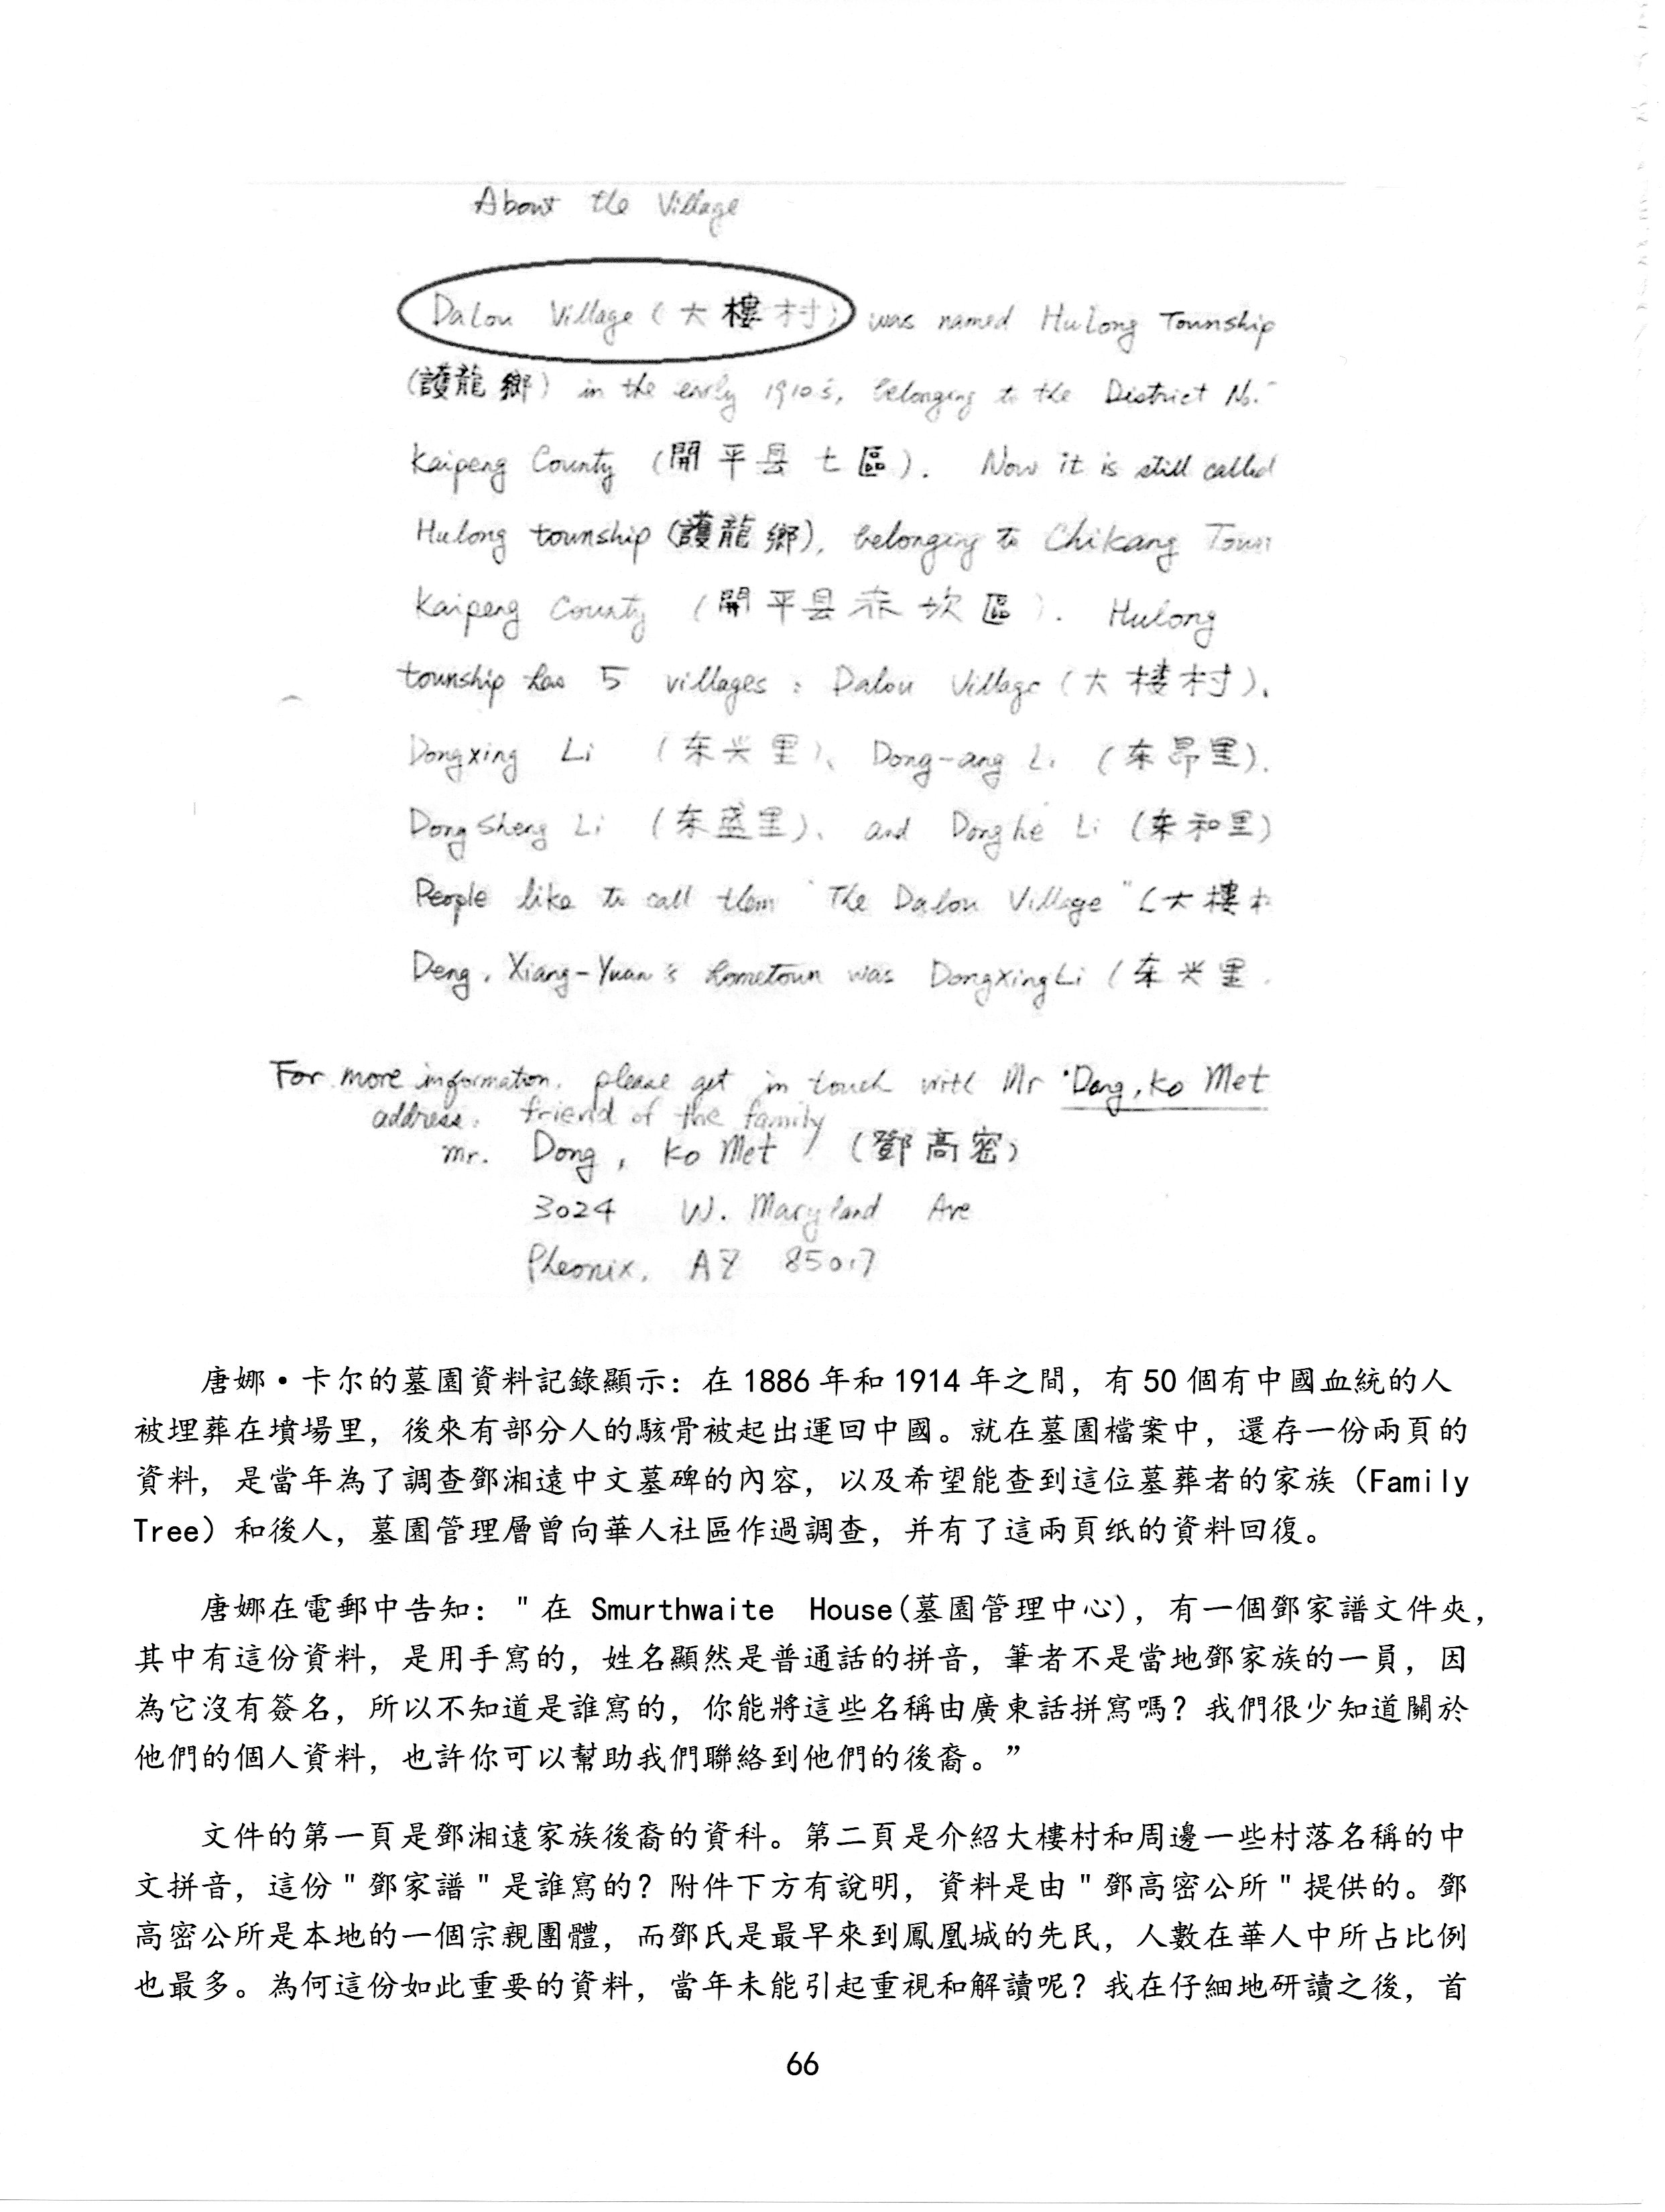 About the Village
Dalou Village (大樓村) was named Hulong Township
(護龍鄉) in the early 1910's, belonging to the District No.
Kaipeng County (開平县七區). Now it is still called
Hulong township (護龍鄉), belonging to Chikang Town
Kaipeng County (開平县赤坎區). Hulong
township has 5 villages: Dalou Village (大楼村)、
Dongxing Li (东兴里)、Dong-ang Li (东昂里)、
Dongsheng Li (东盛里)、and Donghe Li (东和里)
People like to call them "The Dalou Village" (大樓村
Deng, Xiang-Yuan's hometown was DongxingLi (东兴里
For more information, please get in touch with Mr. Dong, Ko Met
address. friend of the family
Mr. Dong, Ko Met (鄧高密)
3024 W. Maryland Ave
Pheonix, AZ 85017
唐娜•卡尔的墓園資料記錄顯示：在 1886 年和 1914 年之間，有 50 個有中國血統的人
被埋葬在墳場里，後來有部分人的駭骨被起出運回中國。就在墓園檔案中，還存一份兩頁的
資料，是當年為了調查鄧湘遠中文墓碑的內容，以及希望能查到這位墓葬者的家族（Family
Tree）和後人，墓園管理層曾向華人社區作過調查，并有了這兩頁纸的資料回復。
唐娜在電郵中告知："在 Smurthwaite House(墓園管理中心)，有一個鄧家譜文件夾，
其中有這份資料，是用手寫的，姓名顯然是普通話的拼音，筆者不是當地鄧家族的一員，因
為它沒有簽名，所以不知道是誰寫的，你能將這些名稱由廣東話拼寫嗎？我們很少知道關於
他們的個人資料，也許你可以幫助我們聯絡到他們的後裔。”
文件的第一頁是鄧湘遠家族後裔的資科。第二頁是介紹大樓村和周邊一些村落名稱的中
文拼音，這份"鄧家譜"是誰寫的？附件下方有說明，資料是由"鄧高密公所"提供的。鄧
高密公所是本地的一個宗親團體，而鄧氏是最早來到鳳凰城的先民，人數在華人中所占比例
也最多。為何這份如此重要的資料，當年未能引起重視和解讀呢？我在仔細地研讀之後，首
66